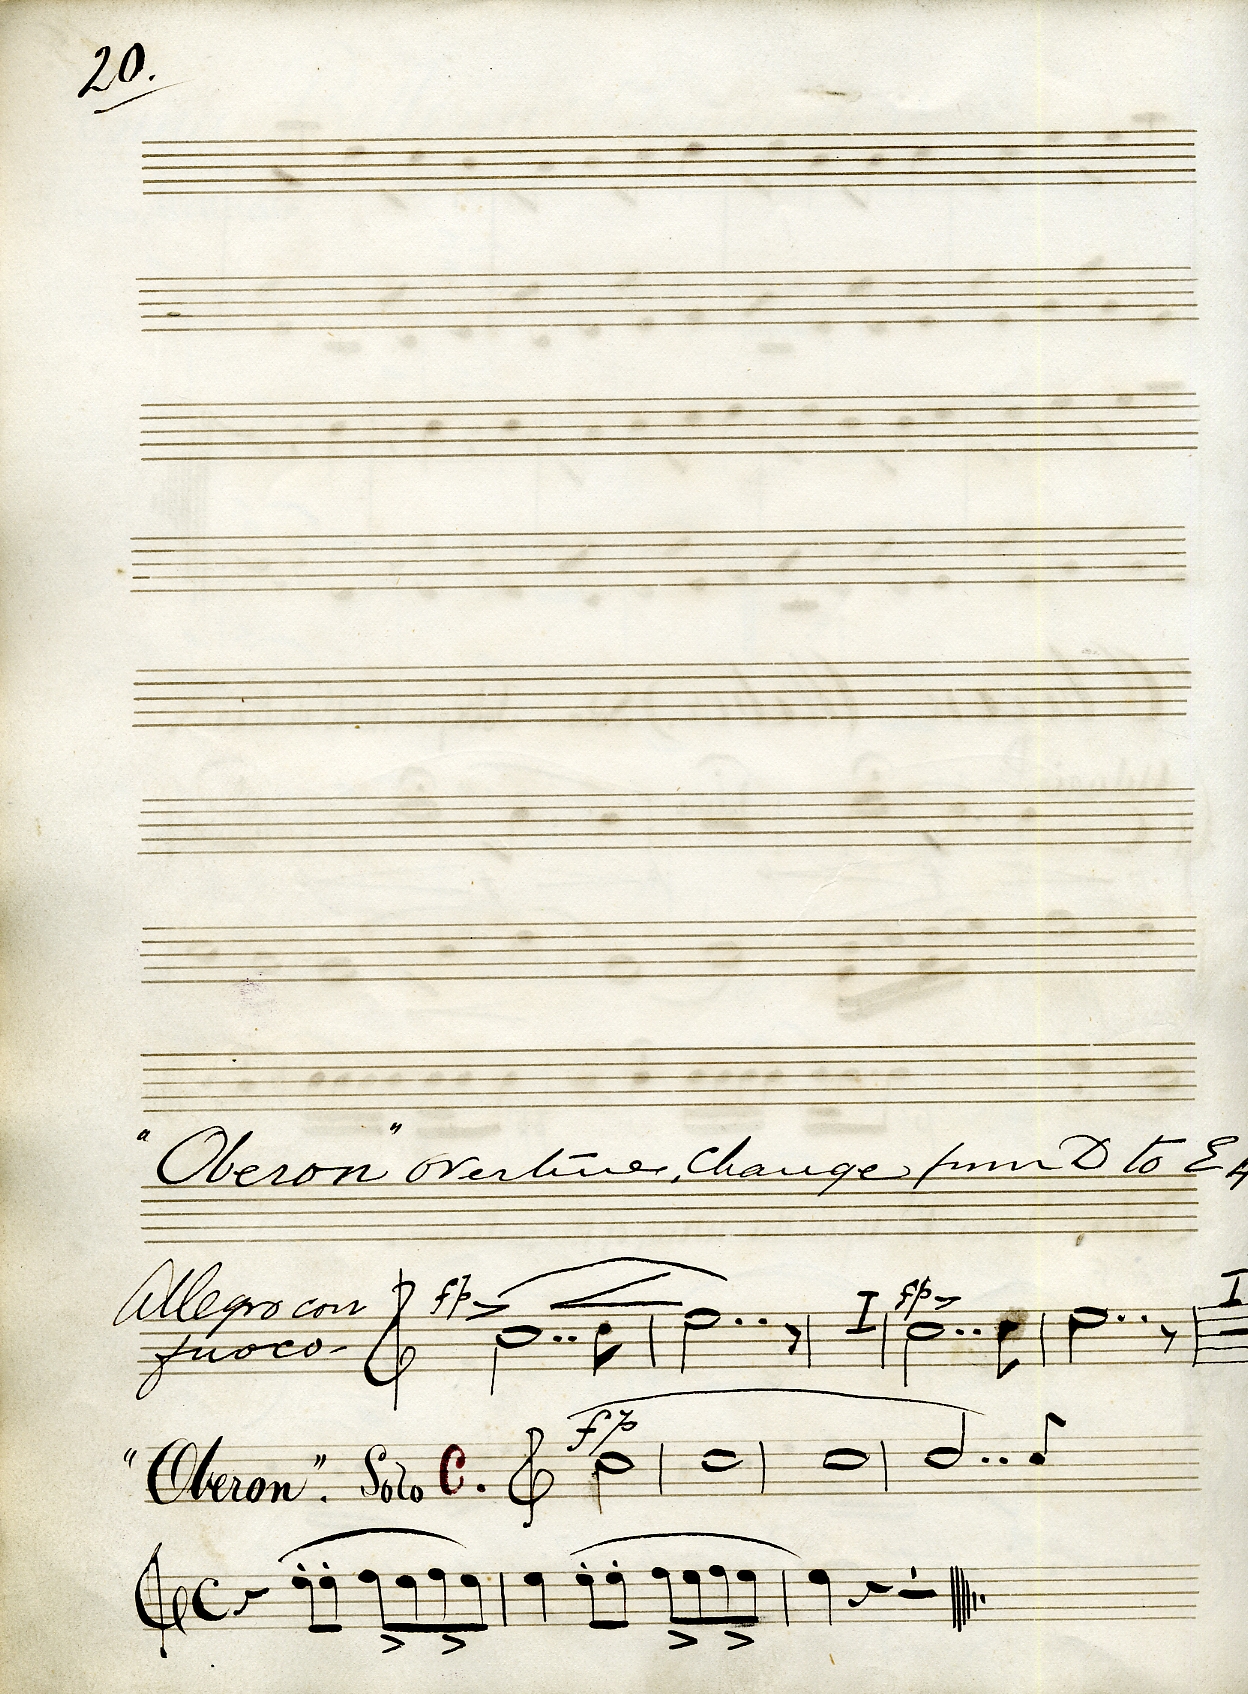 20.
"Oberon" overture, Change from D to E
Allegro con
fuoco
fp
fp
I
I
"Oberon". Solo C.
fp